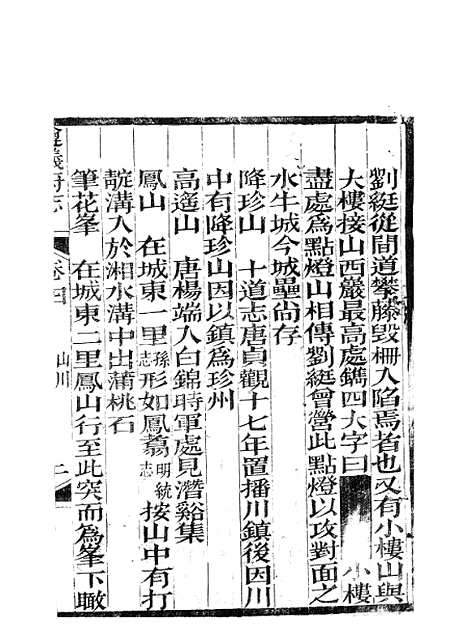 劉綎從間道攀藤毀柵入陷焉者也又有小樓山與
大樓接山西巖最高處鐫四大字曰 小樓
盡處爲點燈山相傳劉綎曾營此點燈以攻對面之
水牛城今城壘尚存
降珍山 十道志唐貞觀十七年置播川鎮後因川
中有降珍山因以鎮爲珍州
高遙山 唐楊端入白錦時軍處見潛谿集
鳳山 在城東一里孫志形如鳳翥明統志按山中有打
靛溝入於湘水溝中出蒲桃石
筆花峯 在城東二里鳳山行至此突而爲峯下瞰
遵義府志 卷四 山川 二